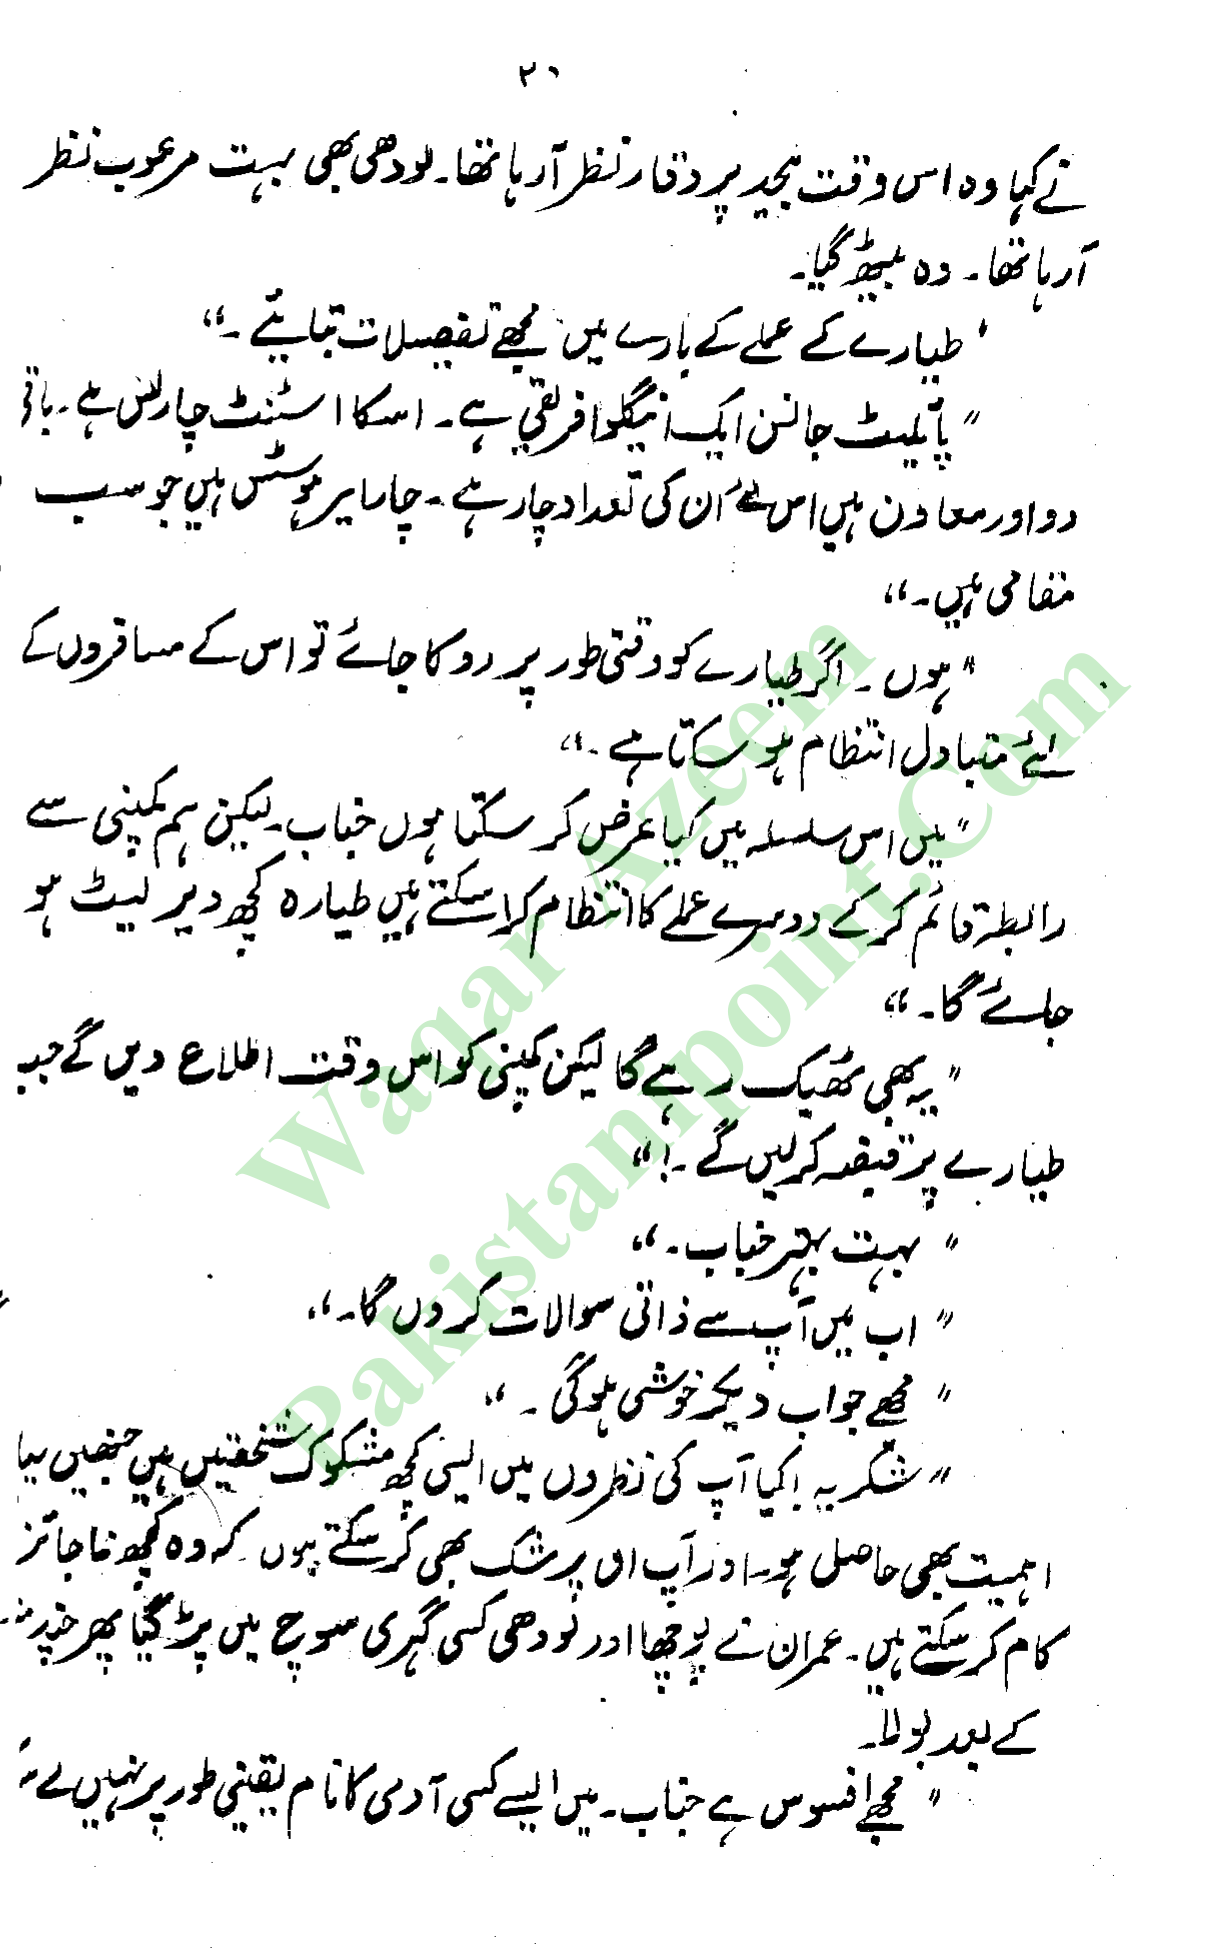 ۲۱
نے کہا وہ اس وقت بیحد پر وقار نظر آرہا تھا۔ لودھی بھی بہت مرعوب نظر
آرہا تھا۔ وہ بیٹھ گیا۔
" طیارے کے عملے کے بارے میں مجھے تفصیلات بتایئے ۔"
" پائیلیٹ جانسن ایک اینگلو افریقی ہے۔ اسکا اسٹنٹ چارلس ہے۔ باقی
دو اور معاون ہیں اس لئے اُن کی تعداد چار ہے۔ چار ایر ہوسٹس ہیں جو سب
مقامی ہیں۔"
" ہوں ۔ اگر طیارے کو وقتی طور پر روکا جائے تو اس کے مسافروں کے
لئے متبادل انتظام ہو سکتا ہے ۔"
" میں اس سلسلہ میں کیا عرض کر سکتا ہوں جناب۔ لیکن ہم کمپنی سے
رابطہ قائم کر کے دوسرے عملے کا انتظام کرا سکتے ہیں طیارہ کچھ دیر لیٹ ہو
جائے گا۔"
" یہ بھی ٹھیک رہے گا لیکن کمپنی کو اس وقت اطلاع دیں گے جب
طیارے پر قبضہ کر لیں گے ۔!"
" بہت بہتر جناب ۔"
" اب میں آپ سے ذاتی سوالات کروں گا۔"
" مجھے جواب دیکر خوشی ہوگی ۔"
" شکریہ! کیا آپ کی نظروں میں ایسی کچھ مشکوک شخصیتیں ہیں جنھیں یہاں
اہمیت بھی حاصل ہو۔ اور آپ ان پر شک بھی کر سکتے ہوں کہ وہ کچھ ناجائز
کام کر سکتے ہیں۔ عمران نے پوچھا اور لودھی کسی گہری سوچ میں پڑ گیا پھر چند
کے بعد بولا۔
" مجھے افسوس ہے جناب۔ میں ایسے کسی آدمی کا نام یقینی طور پر نہیں لے
Waqar Azeem
Pakistanipoint.Com